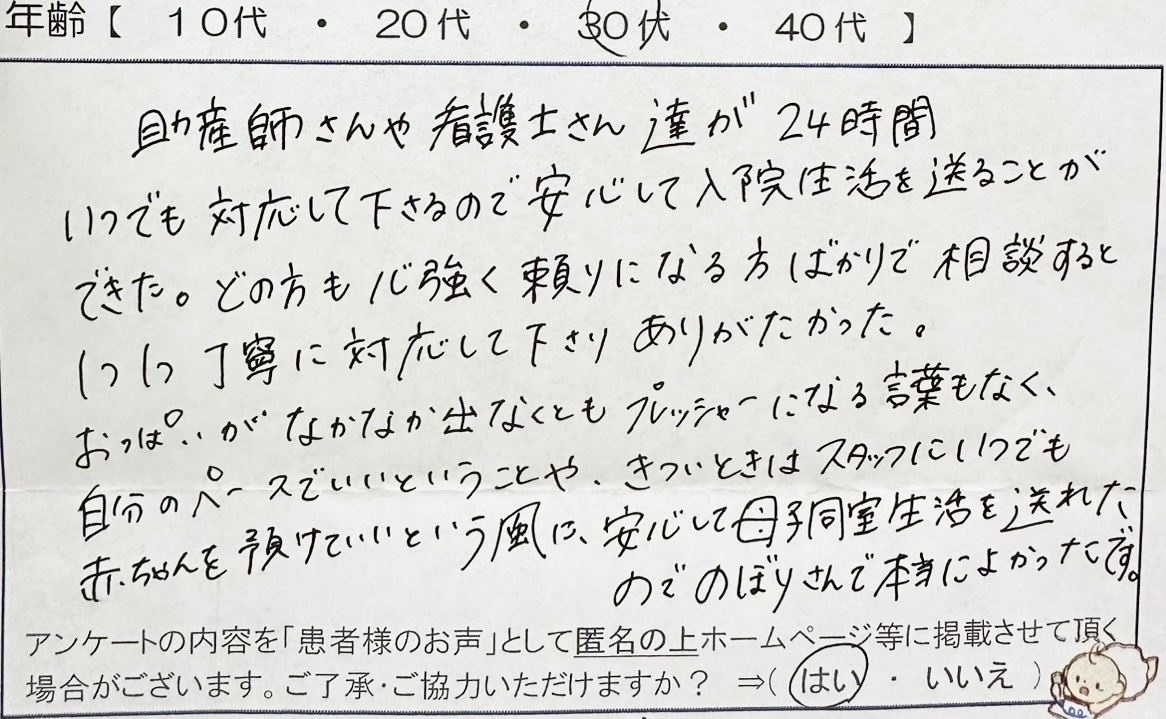 年齢【 10代 ・ 20代 ・ 30代 ・ 40代 】
助産師さんや看護士さん達が24時間
いつでも対応して下さるので安心して入院生活を送ることが
できた。どの方も心強く頼りになる方ばかりで相談すると
1つ1つ丁寧に対応して下さりありがたかった。
おっぱいがなかなか出なくともプレッシャーになる言葉もなく、
自分のペースでいいということや、きついときはスタッフにいつでも
赤ちゃんを預けていいという風に、安心して母子同室生活を送れた
のでのぼりさんで本当によかったです。
アンケートの内容を「患者様のお声」として匿名の上ホームページ等に掲載させて頂く
場合がございます。ご了承・ご協力いただけますか？ ⇒( はい ・ いいえ )